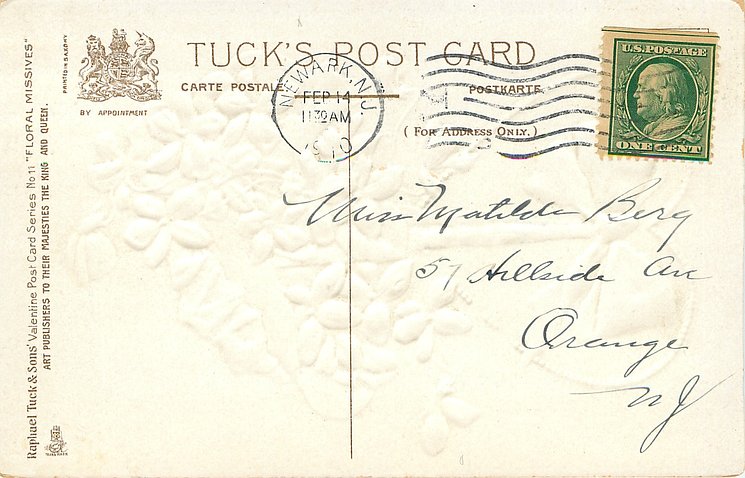 TUCK'S POST CARD
CARTE POSTALE
POSTKARTE
(FOR ADDRESS ONLY.)
BY APPOINTMENT
PRINTED IN SAXONY
NEWARK, N.J.
FEB 14
1130 AM
1910
U.S. POSTAGE
ONE CENT
Miss Matilda Berg
51 Hillside Ave
Orange
NJ
Raphael Tuck & Sons' Valentine Post Card Series No 11 "FLORAL MISSIVES"
ART PUBLISHERS TO THEIR MAJESTIES THE KING AND QUEEN.